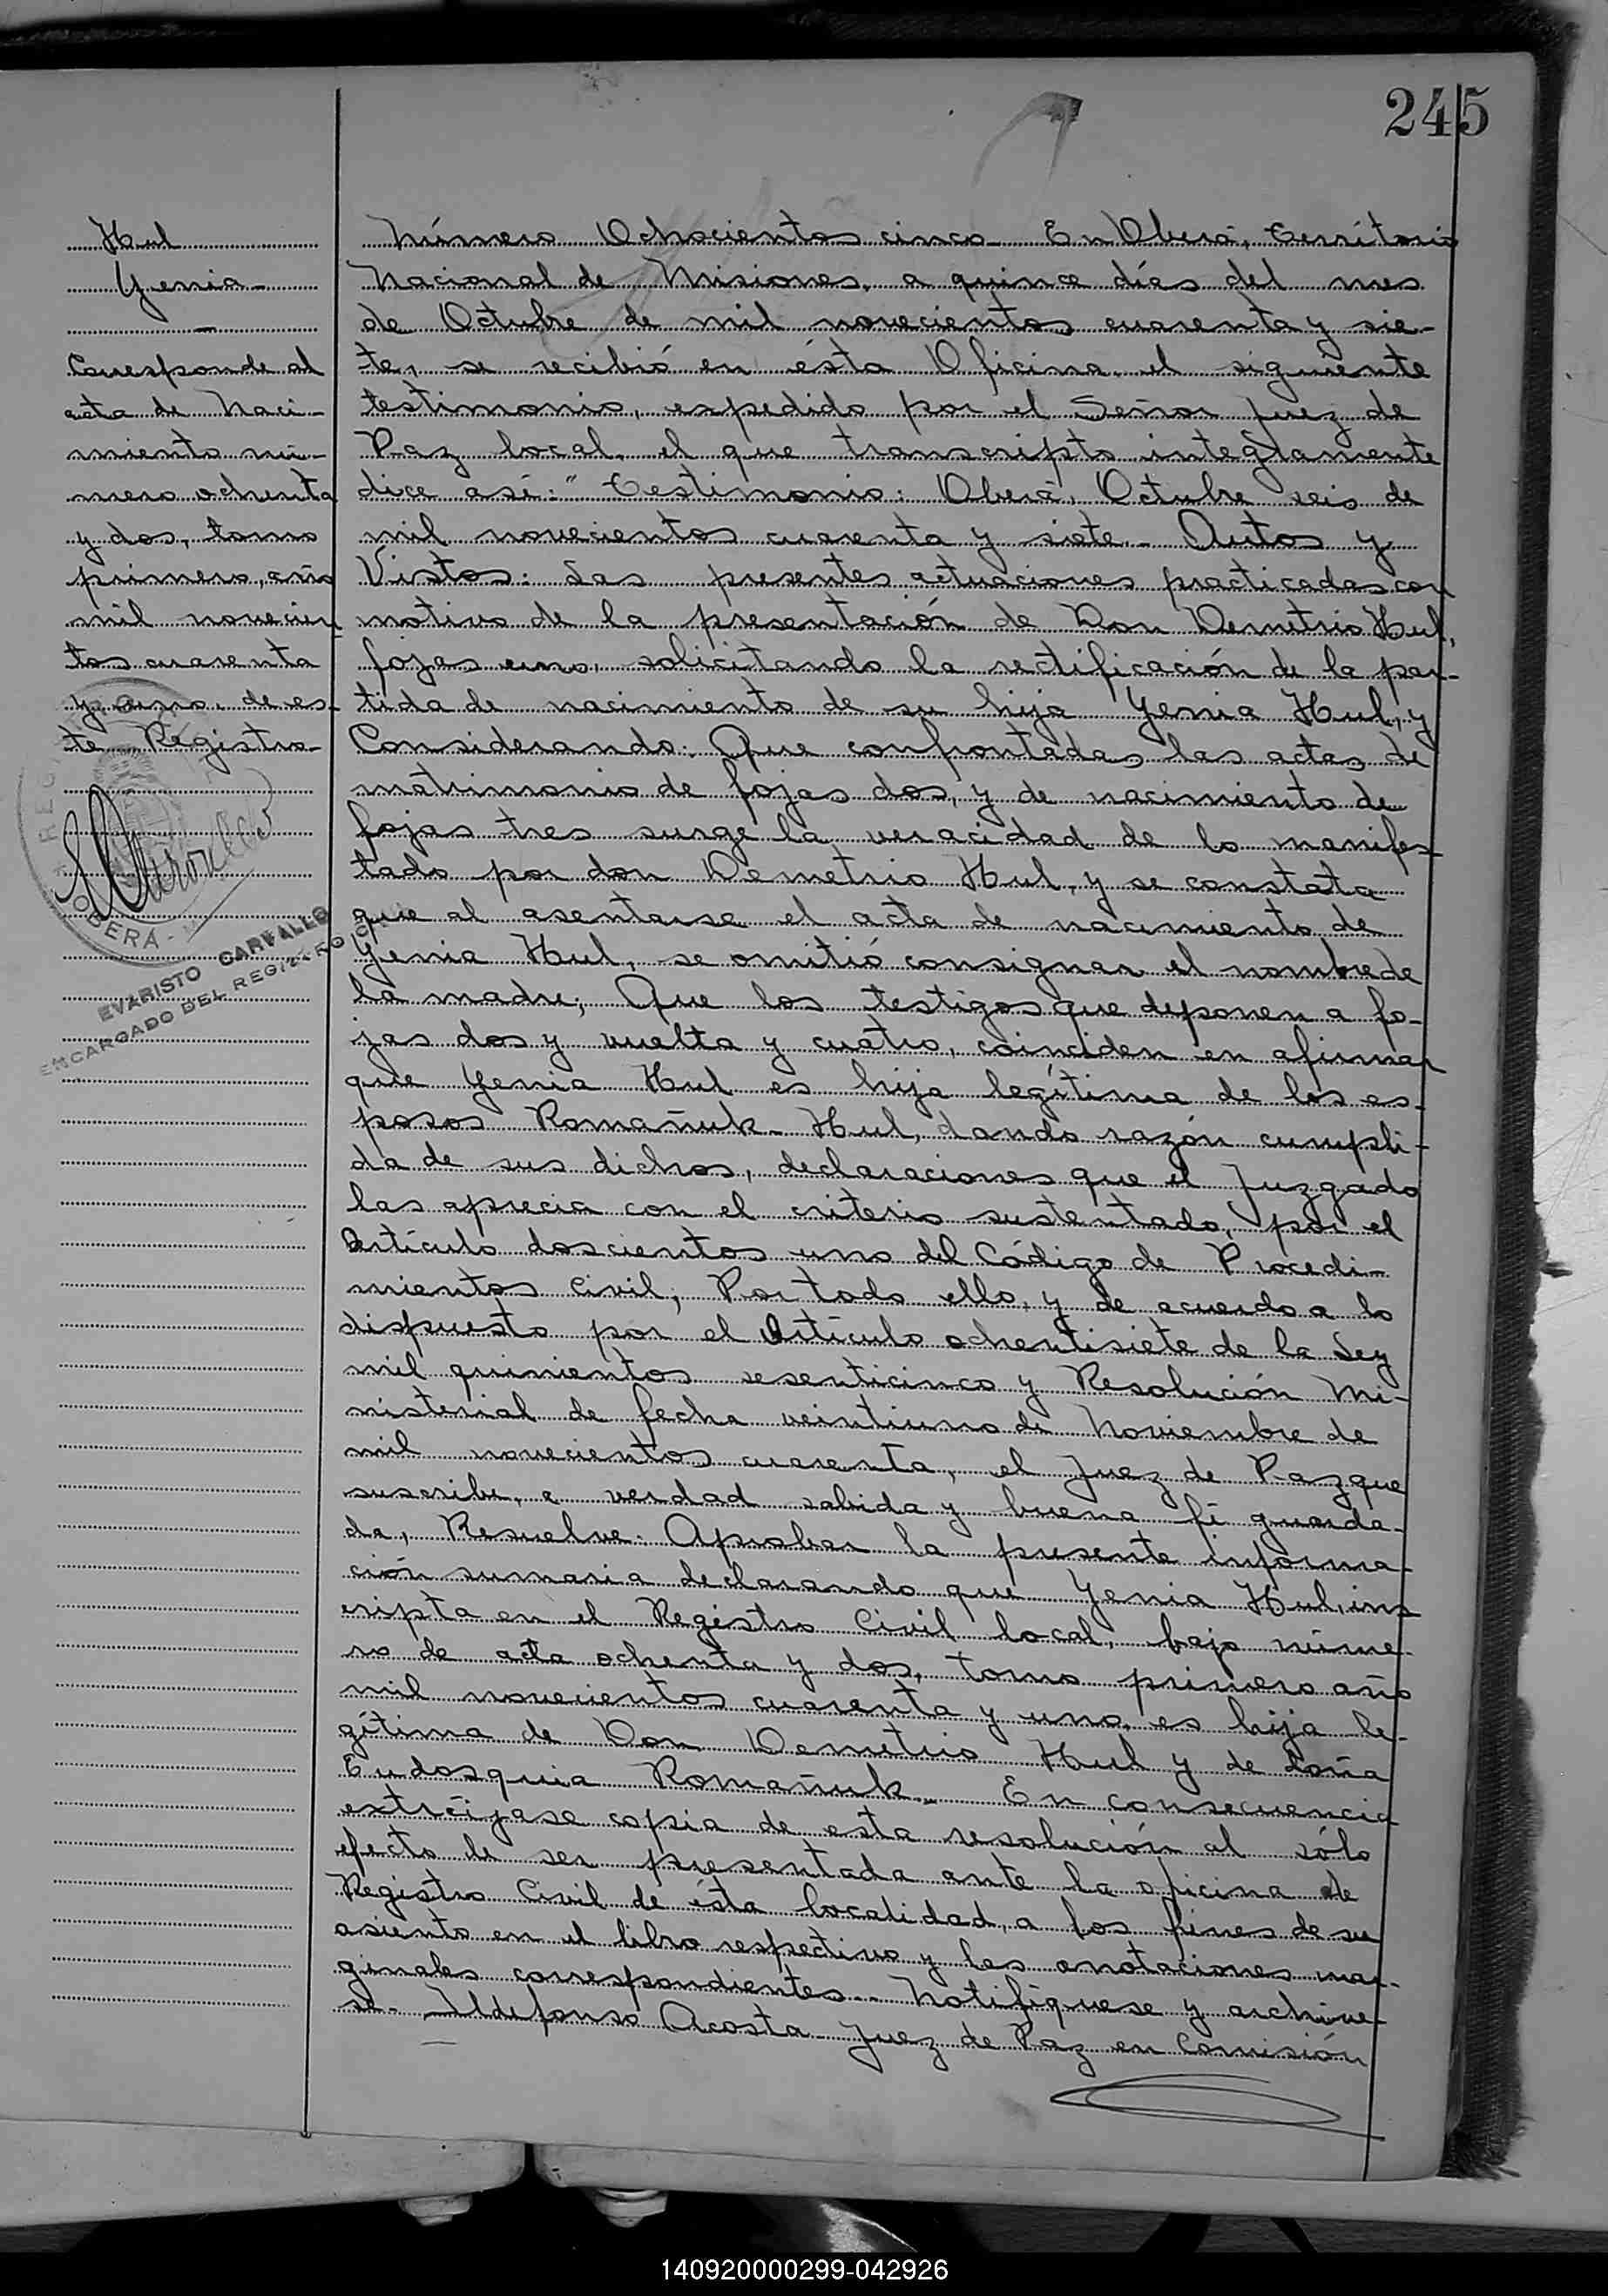 245
Hul
Yenia-
Corresponde al
acta de Naci-
miento nú-
mero ochenta
y dos, tomo
primero, año
mil novecien
tos cuarenta
y uno, de es-
te Registro-
REGI
OBERÁ-
EVARISTO CARVALLO
ENCARGADO DEL REGISTRO
Número Ochocientos cinco- En Oberá, Territorio
Nacional de Misiones, a quince días del mes
de Octubre de mil novecientos cuarenta y sie-
te, se recibió en ésta Oficina el siguiente
testimonio, expedido por el Señor Juez de
Paz local, el que transcripto integramente
dice así: "Testimonio: Oberá, Octubre seis de
mil novecientos cuarenta y siete- Autos y
Vistos: Las presentes actuaciones practicadas con
motivo de la presentación de Don Demetrio Hul,
fojas uno, solicitando la rectificación de la par-
tida de nacimiento de su hija Yenia Hul, y
Considerando: Que confrontadas las actas de
matrimonio de fojas dos, y de nacimiento de
fojas tres surge la veracidad de lo manifes-
tado por don Demetrio Hul, y se constata
que al asentarse el acta de nacimiento de
Yenia Hul, se omitió consignar el nombre de
la madre; Que los testigos que deponen a fo-
jas dos y vuelta y cuatro, coinciden en afirmar
que Yenia Hul es hija legítima de los es-
posos Romañuk- Hul, dando razón cumpli-
da de sus dichos, declaraciones que el Juzgado
las aprecia con el criterio sustentado, por el
Artículo doscientos uno del Código de Procedi-
mientos Civil, Por todo ello, y de acuerdo a lo
dispuesto por el Artículo ochentisiete de la Ley
mil quinientos sesenticinco y Resolución Mi-
nisterial de fecha veintiuno de Noviembre de
mil novecientos cuarenta, el Juez de Paz que
suscribe, a verdad sabida y buena fé guarda-
da, Resuelve: Aprobar la presente informa-
ción sumaria declarando que Yenia Hul, ins
cripta en el Registro Civil local, bajo núme-
ro de acta ochenta y dos, tomo primero año
mil novecientos cuarenta y uno, es hija le-
gítima de Don Demetrio Hul y de Doña
Eudosquia Romañuk.- En consecuencia
extráijase copia de esta resolución al sólo
efecto de ser presentada ante la oficina de
Registro Civil de ésta localidad, a los fines de su
asiento en el libro respectivo y las anotaciones mar-
ginales correspondientes.- Notifíquese y archíve-
se- Ildefonso Acosta- Juez de Paz en Comisión
140920000299-042926